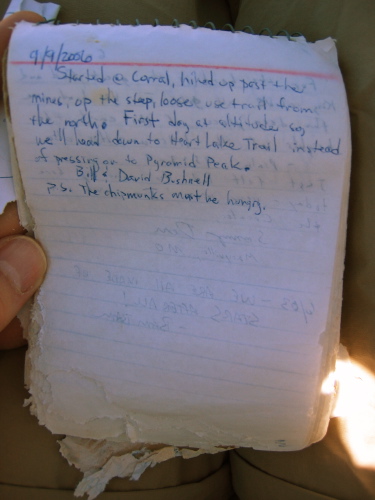 9/9/2006
Started @ Corral, hiked up past the
mines, up the steep, loose use trail from
the north. First day at altitude so,
we'll head down to Heart Lake Trail instead
of pressing on to Pyramid Peak.
Bill & David Bushnell
P.S. The chipmunks must be hungry.